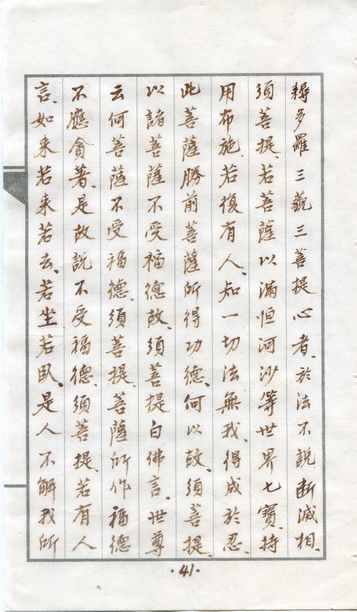 耨多羅三藐三菩提心者、於法不說斷滅相、
須菩提、若菩薩以滿恒河沙等世界七寶、持
用布施、若復有人、知一切法無我、得成於忍、
此菩薩勝前菩薩所得功德、何以故、須菩提、
以諸菩薩不受福德故、須菩提白佛言、世尊
云何菩薩不受福德、須菩提、菩薩所作福德
不應貪著、是故說不受福德、須菩提、若有人
言、如來若來若去、若坐若臥、是人不解我所
·41·